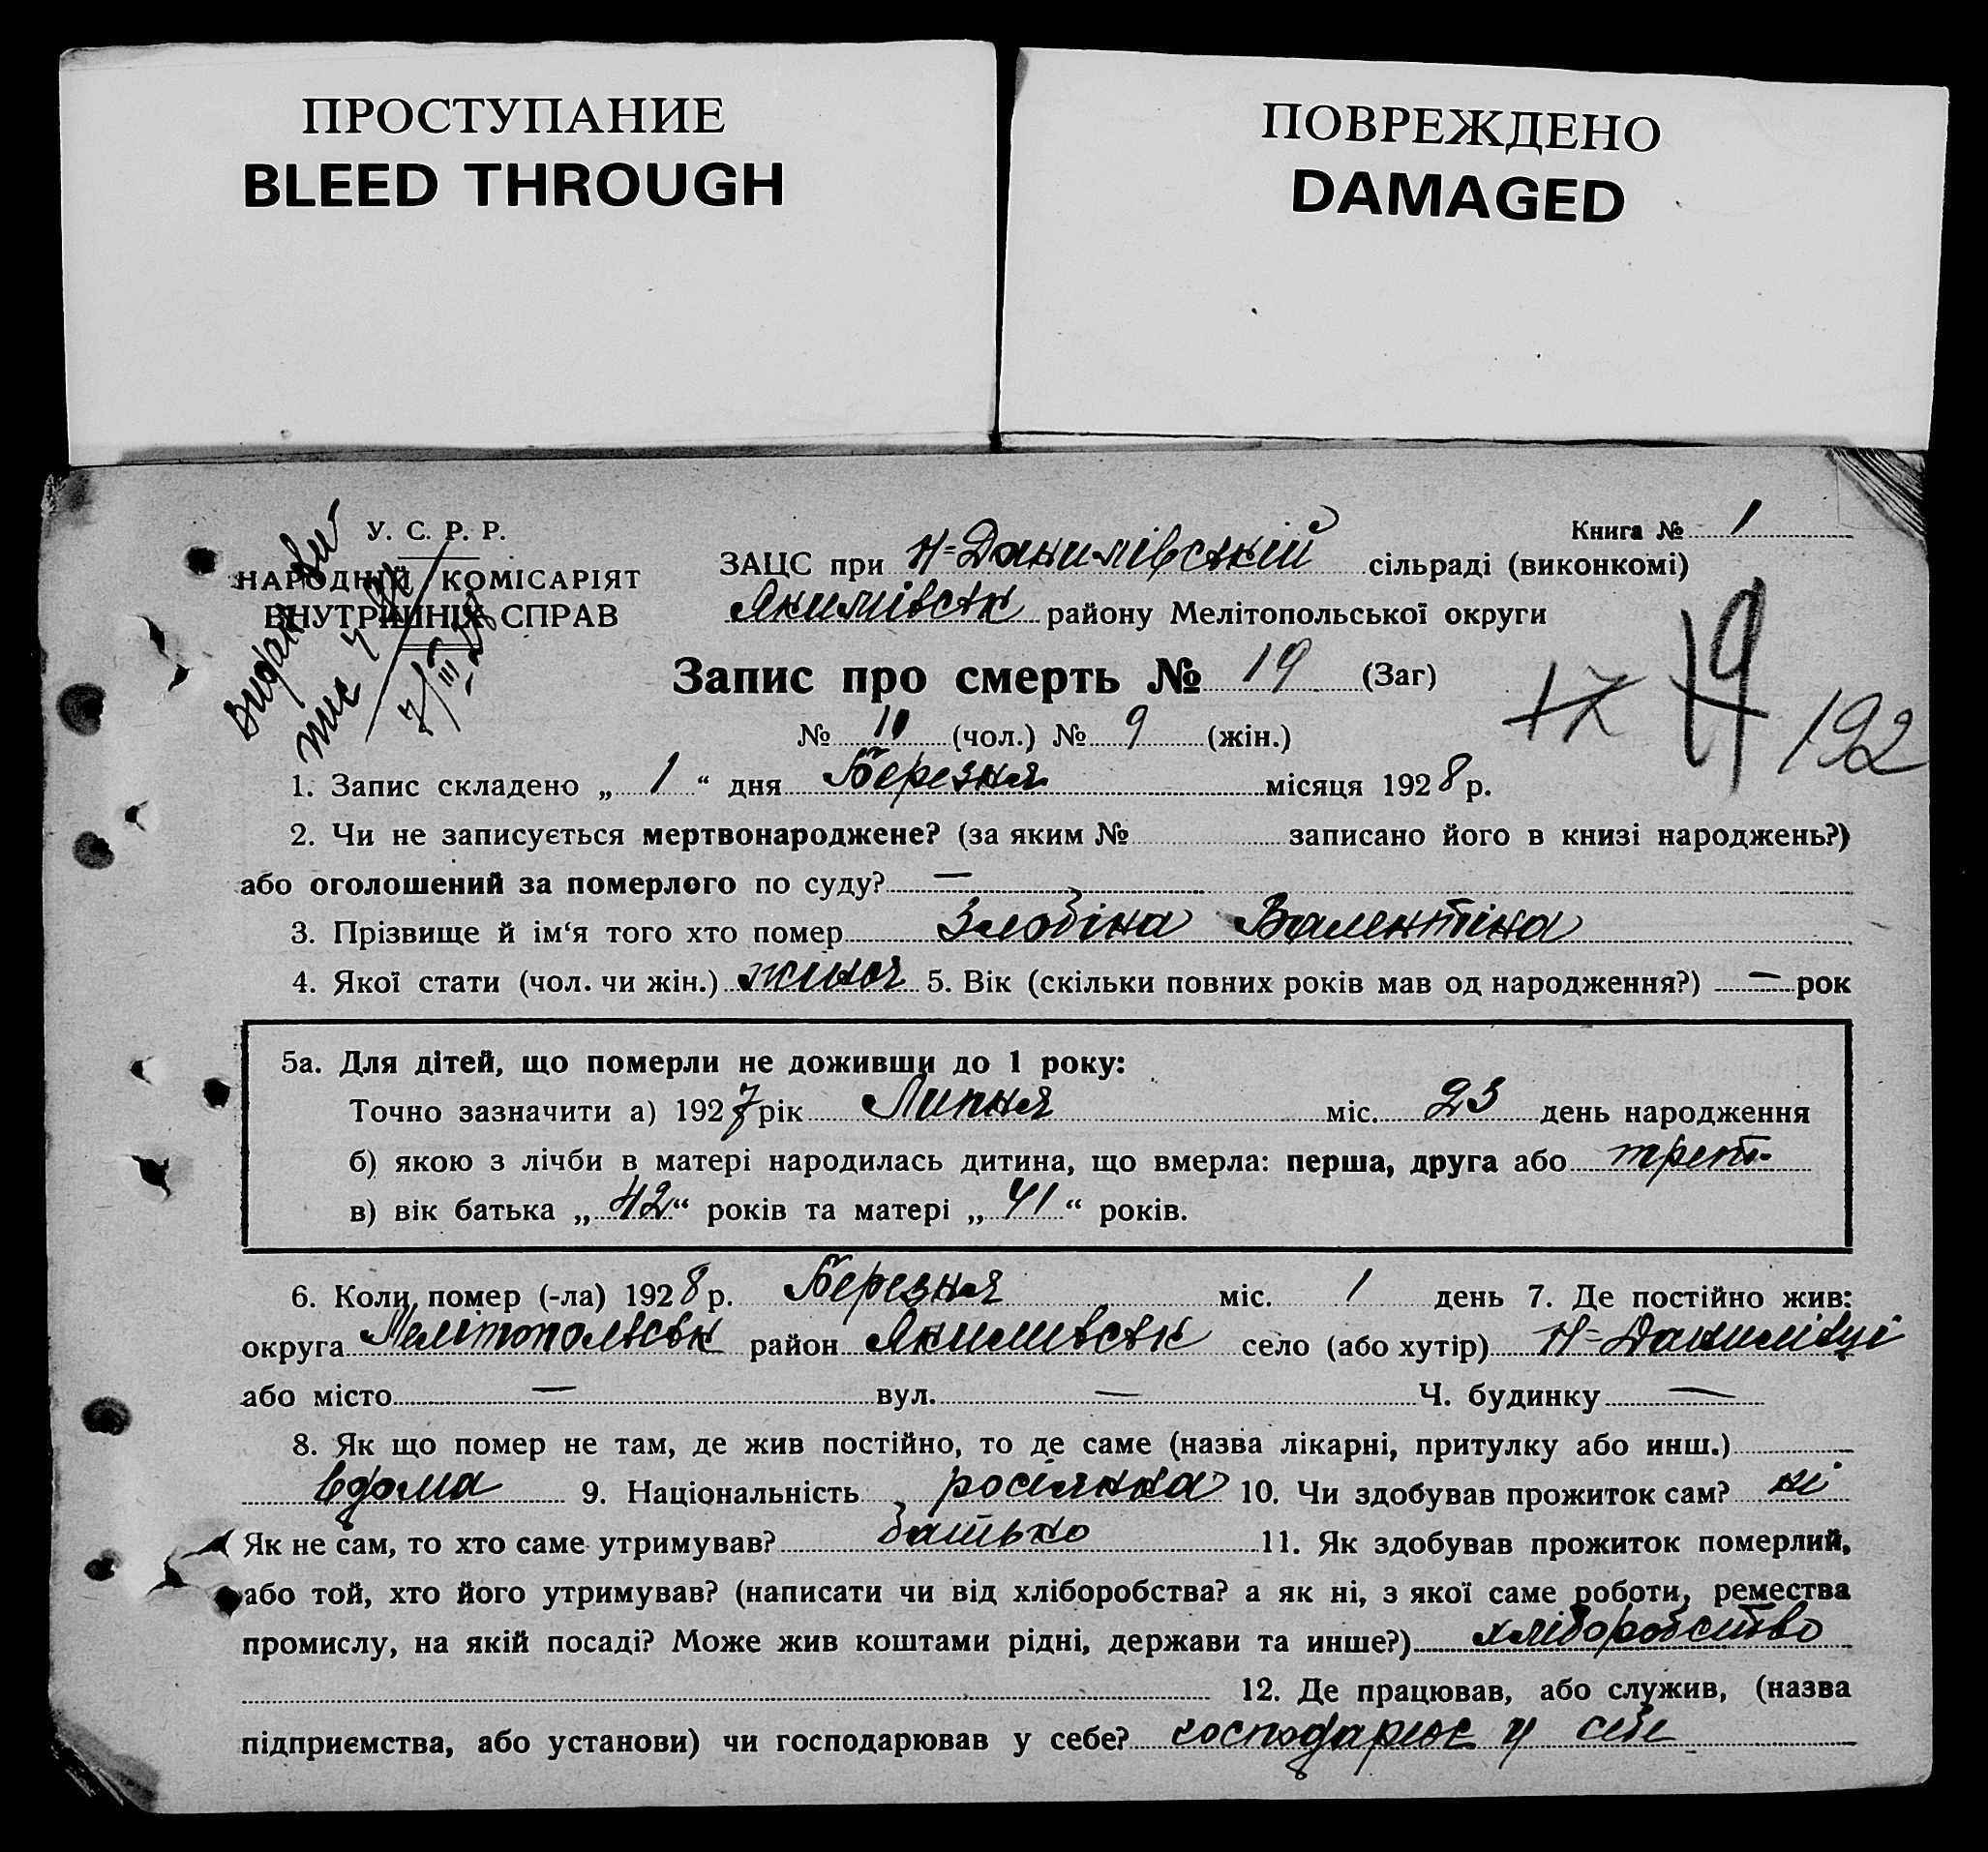 ПРОСТУПАНИЕ
BLEED THROUGH
ПОВРЕЖДЕНО
DAMAGED
У. С. Р. Р.
НАРОДНІЙ КОМІСАРІЯТ
ВНУТРІШНІХ СПРАВ
Книга № 1
ЗАЦС при Н-Данилівській сільраді (виконкомі)
Якимівськ району Мелітопольської округи
Запис про смерть № 19 (Заг)
17 19 192
№ 10 (чол.) № 9 (жін.)
1. Запис складено „ 1 “ дня Березня місяця 1928 р.
2. Чи не записується мертвонароджене? (за яким № записано його в книзі народжень?)
або оголошений за померлого по суду? —
3. Прізвище й ім‘я того хто помер Злобіна Валентіна
4. Якої стати (чол. чи жін.) жіноч 5. Вік (скільки повних років мав од народження?) — рок
5а. Для дітей, що померли не доживши до 1 року:
Точно зазначити а) 1927 рік Липня міс. 23 день народження
б) якою з лічби в матері народилась дитина, що вмерла: перша, друга або трет-
в) вік батька „ 42 “ років та матері „ 41 “ років.
6. Коли помер (-ла) 1928 р. Березня міс. 1 день 7. Де постійно жив:
округа Мелітопольськ район Якимівськ село (або хутір) Н-Данилівці
або місто — вул. — Ч. будинку —
8. Як що помер не там, де жив постійно, то де саме (назва лікарні, притулку або инш.)
вдома 9. Національність росіянка 10. Чи здобував прожиток сам? ні
Як не сам, то хто саме утримував? батько 11. Як здобував прожиток померлий,
або той, хто його утримував? (написати чи від хліборобства? а як ні, з якої саме роботи, ремества
промислу, на якій посаді? Може жив коштами рідні, держави та инше?) хліборобство
12. Де працював, або служив, (назва
підприємства, або установи) чи господарював у себе? господарює у себе